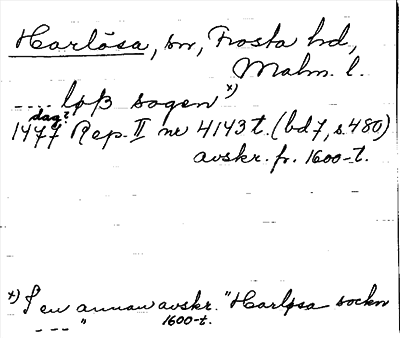 Harlösa, sn, Frosta hd,
Malm. l.
---- løß sogen x)
dag?
1477 Rep. II nr 4143 t. (bd 7, s. 480)
avskr. fr. 1600-t.
x) I en annan avskr. "Harløsa sockn
---" 1600-t.